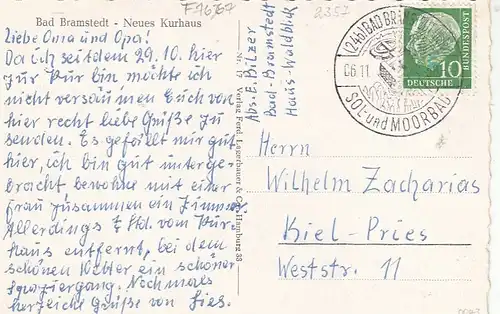 Bad Bramstedt - Neues Kurhaus
F 16767
2357
Liebe Oma und Opa!
Da ich seit dem 29.10. hier
zur Kur bin möchte ich
nicht versäumen Euch von
hier recht liebe Grüße zu
senden. Es gefällt mir gut
hier, ich bin gut unterge-
bracht bewohne mit einer
Frau zusammen ein Zimmer
Allerdings ½ Std. vom Kur
haus entfernt, bei dem
schönen Wetter ein schöner
Spaziergang. Nochmals
herzliche Grüße von Lies.
Verlag Ferd. Lagerbauer & Co., Hamburg 33
Abs. E. Bilzer
Bad-Bramstedt
Haus-Waldblick
(24b) BAD BR
06.11
SOL- und MOORBAD
DEUTSCHE
BUNDESPOST
10
Herrn
Wilhelm Zacharias
Kiel-Pries
Weststr. 11